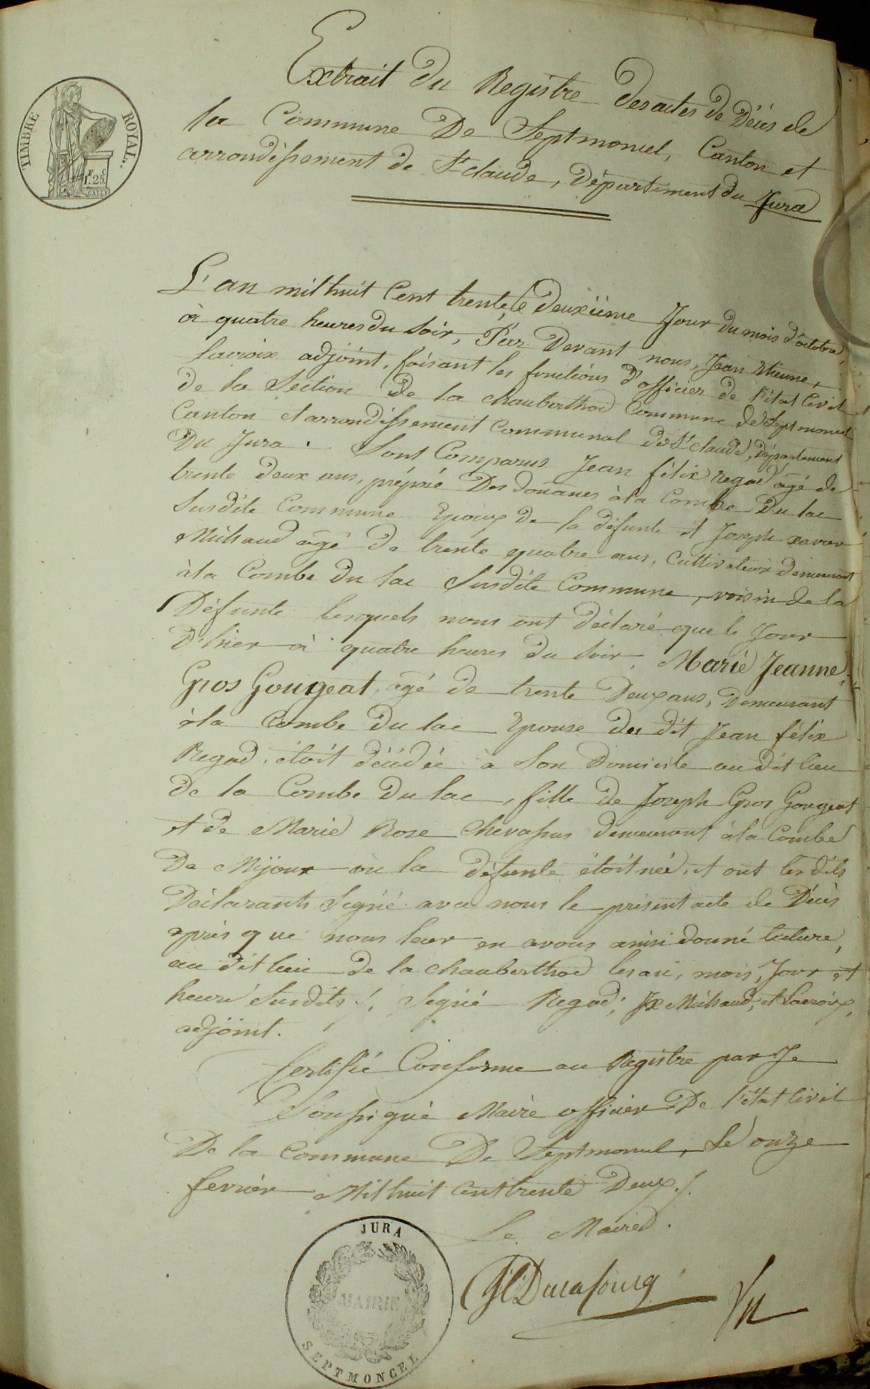 Extrait du Registre des actes de Décès de
la Commune De Septmoncel, Canton et
arrondissement de St claude, Département du Jura
TIMBRE ROYAL
1.25
L'an mil huit Cent trente, le deuxiieme Jour du mois d'octobre
à quatre heures du Soir, Par Devant nous, Jean Etienne
Lacroix adjoint, faisant les fonctions d'officier de l'état Civil
de la Section de La chauberthod Commune de Septmoncel
Canton et arrondissement Communal de St claude, Département
Du Jura. Sont Comparus Jean félix Regad âgé de
trente deux ans, préposé Des douanes à la Combe Du lac
Susdite Commune Epoux De la défunte et Joseph xavier
Michaud âgé De trente quatre ans, Cultivateur demeurant
à la Combe du lac Susdite Commune, voisin de la
Défunte lesquels nous ont déclaré que le Jour
D'hier à quatre heures du Soir, Marie Jeanne
Gros Gougeat, âgé de trente Deux ans, Demeurant
à la Combe du lac Epouse du dit Jean félix
Regad, étoit décédée à Son Domicile au dit lieu
De la Combe Du lac, fille de Joseph Gros Gougeat
et de Marie Rose Chevassus demeurant à la Combe
De Mijoux où la défunte étoit née, et ont les dits
Déclarants Signé avec nous le présent acte de Décès
après que nous leur en avons ainsi donné lecture,
au dit lieu de la chauberthod les an, mois, Jour et
heure Susdits. Signé Regad; Jx Michaud, et Lacroix,
adjoint.
Certifié Conforme au Registre par Je
Soussigné Maire officier De l'état Civil
De la Commune De Septmoncel, Le onze
fevrier Mil huit cent trente Deux.
Le Maire
Dalafourg
JURA
MAIRIE
SEPTMONCEL